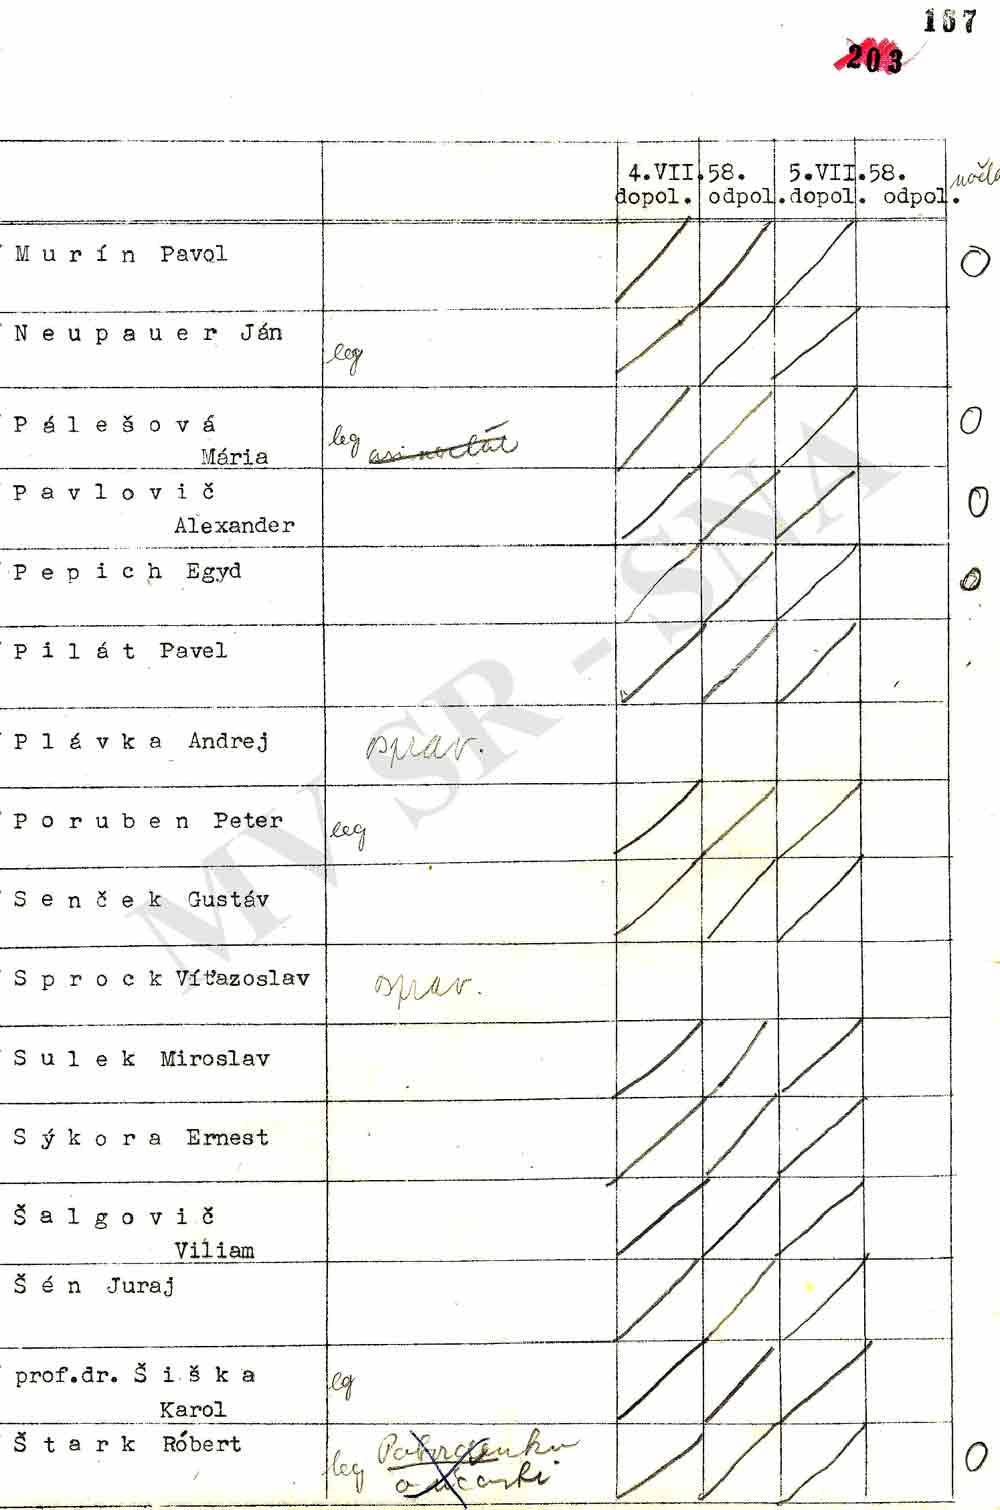 157
203
4.VII.58. 5.VII.58.
dopol. odpol. dopol. odpol.
Murín Pavol
Neupauer Ján leg
Pálešová leg
Mária
Pavlovič
Alexander
Pepich Egyd
Pilát Pavel
Plávka Andrej osprav.
Poruben Peter leg
Senček Gustáv
Sprock Víťazoslav osprav.
Sulek Miroslav
Sýkora Ernest
Šalgovič
Viliam
Šén Juraj
prof.dr. Šiška leg
Karol
Štark Róbert leg
o účasti
MV SR - SNA